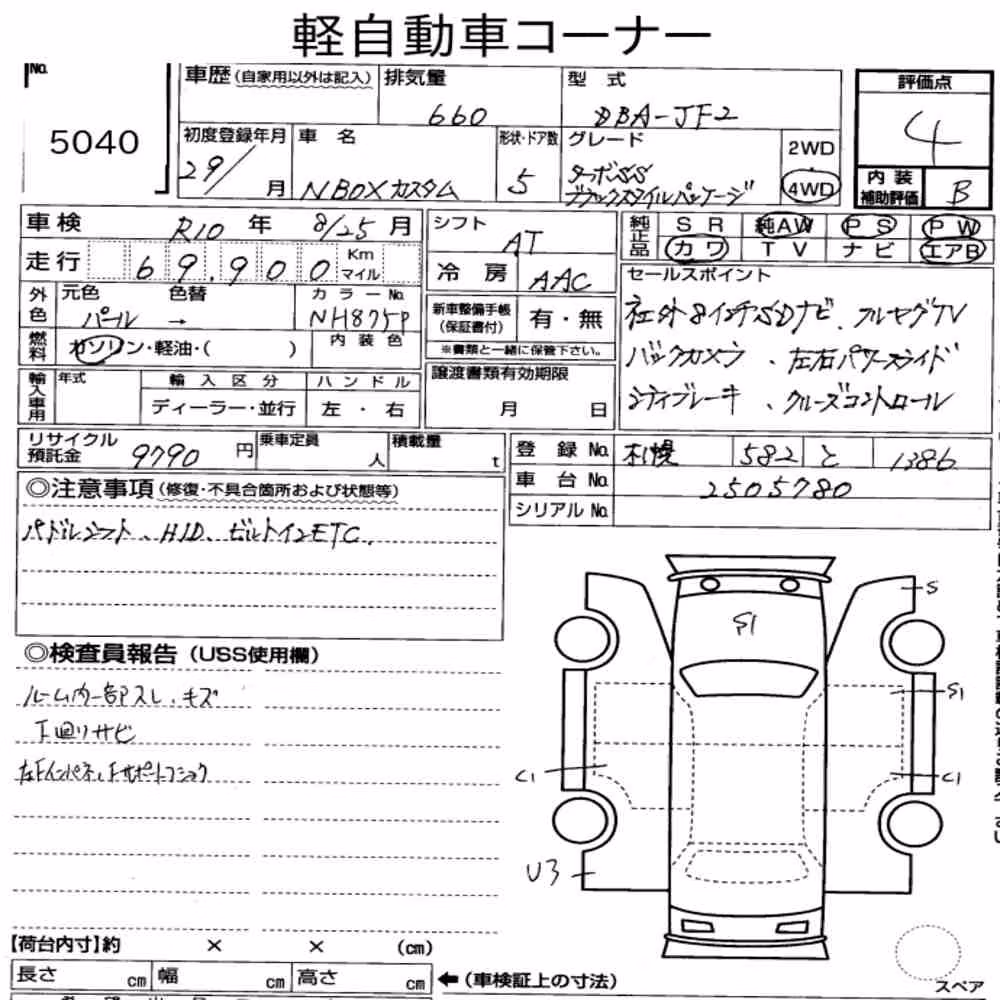 軽自動車コーナー
No.
5040
車歴 (自家用以外は記入)
排気量
660
型式
DBA-JF2
評価点
4
初度登録年月
29/ 月
車名
NBOXカスタム
形状・ドア数
5
グレード
ターボSS
ブラックスタイルパッケージ
2WD
4WD
内装
補助評価
B
車検 R10 年 8/25 月
シフト
AT
純正品
SR 純AW PS PW
カワ TV ナビ エアB
走行 69,900 Km
マイル
冷房 AAC
外色
元色 色替
パール →
カラーNo.
NH875P
新車整備手帳
(保証書付)
有・無
※書類と一緒に保管下さい。
セールスポイント
社外8インチSDナビ、フルセグTV
バックカメラ、左右パワースライド
シティブレーキ、クルーズコントロール
燃料
ガソリン・軽油・( )
内装色
輸入車用
年式
輸入区分
ハンドル
ディーラー・並行
左・右
譲渡書類有効期限
月 日
リサイクル
預託金
9790 円
乗車定員
人
積載量
t
登録No. 札幌 582 と 1386
車台No. 2505780
シリアルNo.
◎注意事項 (修復・不具合箇所および状態等)
パドルシフト、HID、ビルトインETC.
◎検査員報告 (USS使用欄)
ルーム内一部スレ、キズ
下廻りサビ
S
S1
S1
C1
C1
U3
【荷台内寸】約 × × (cm)
長さ cm 幅 cm 高さ cm
← (車検証上の寸法)
スペア